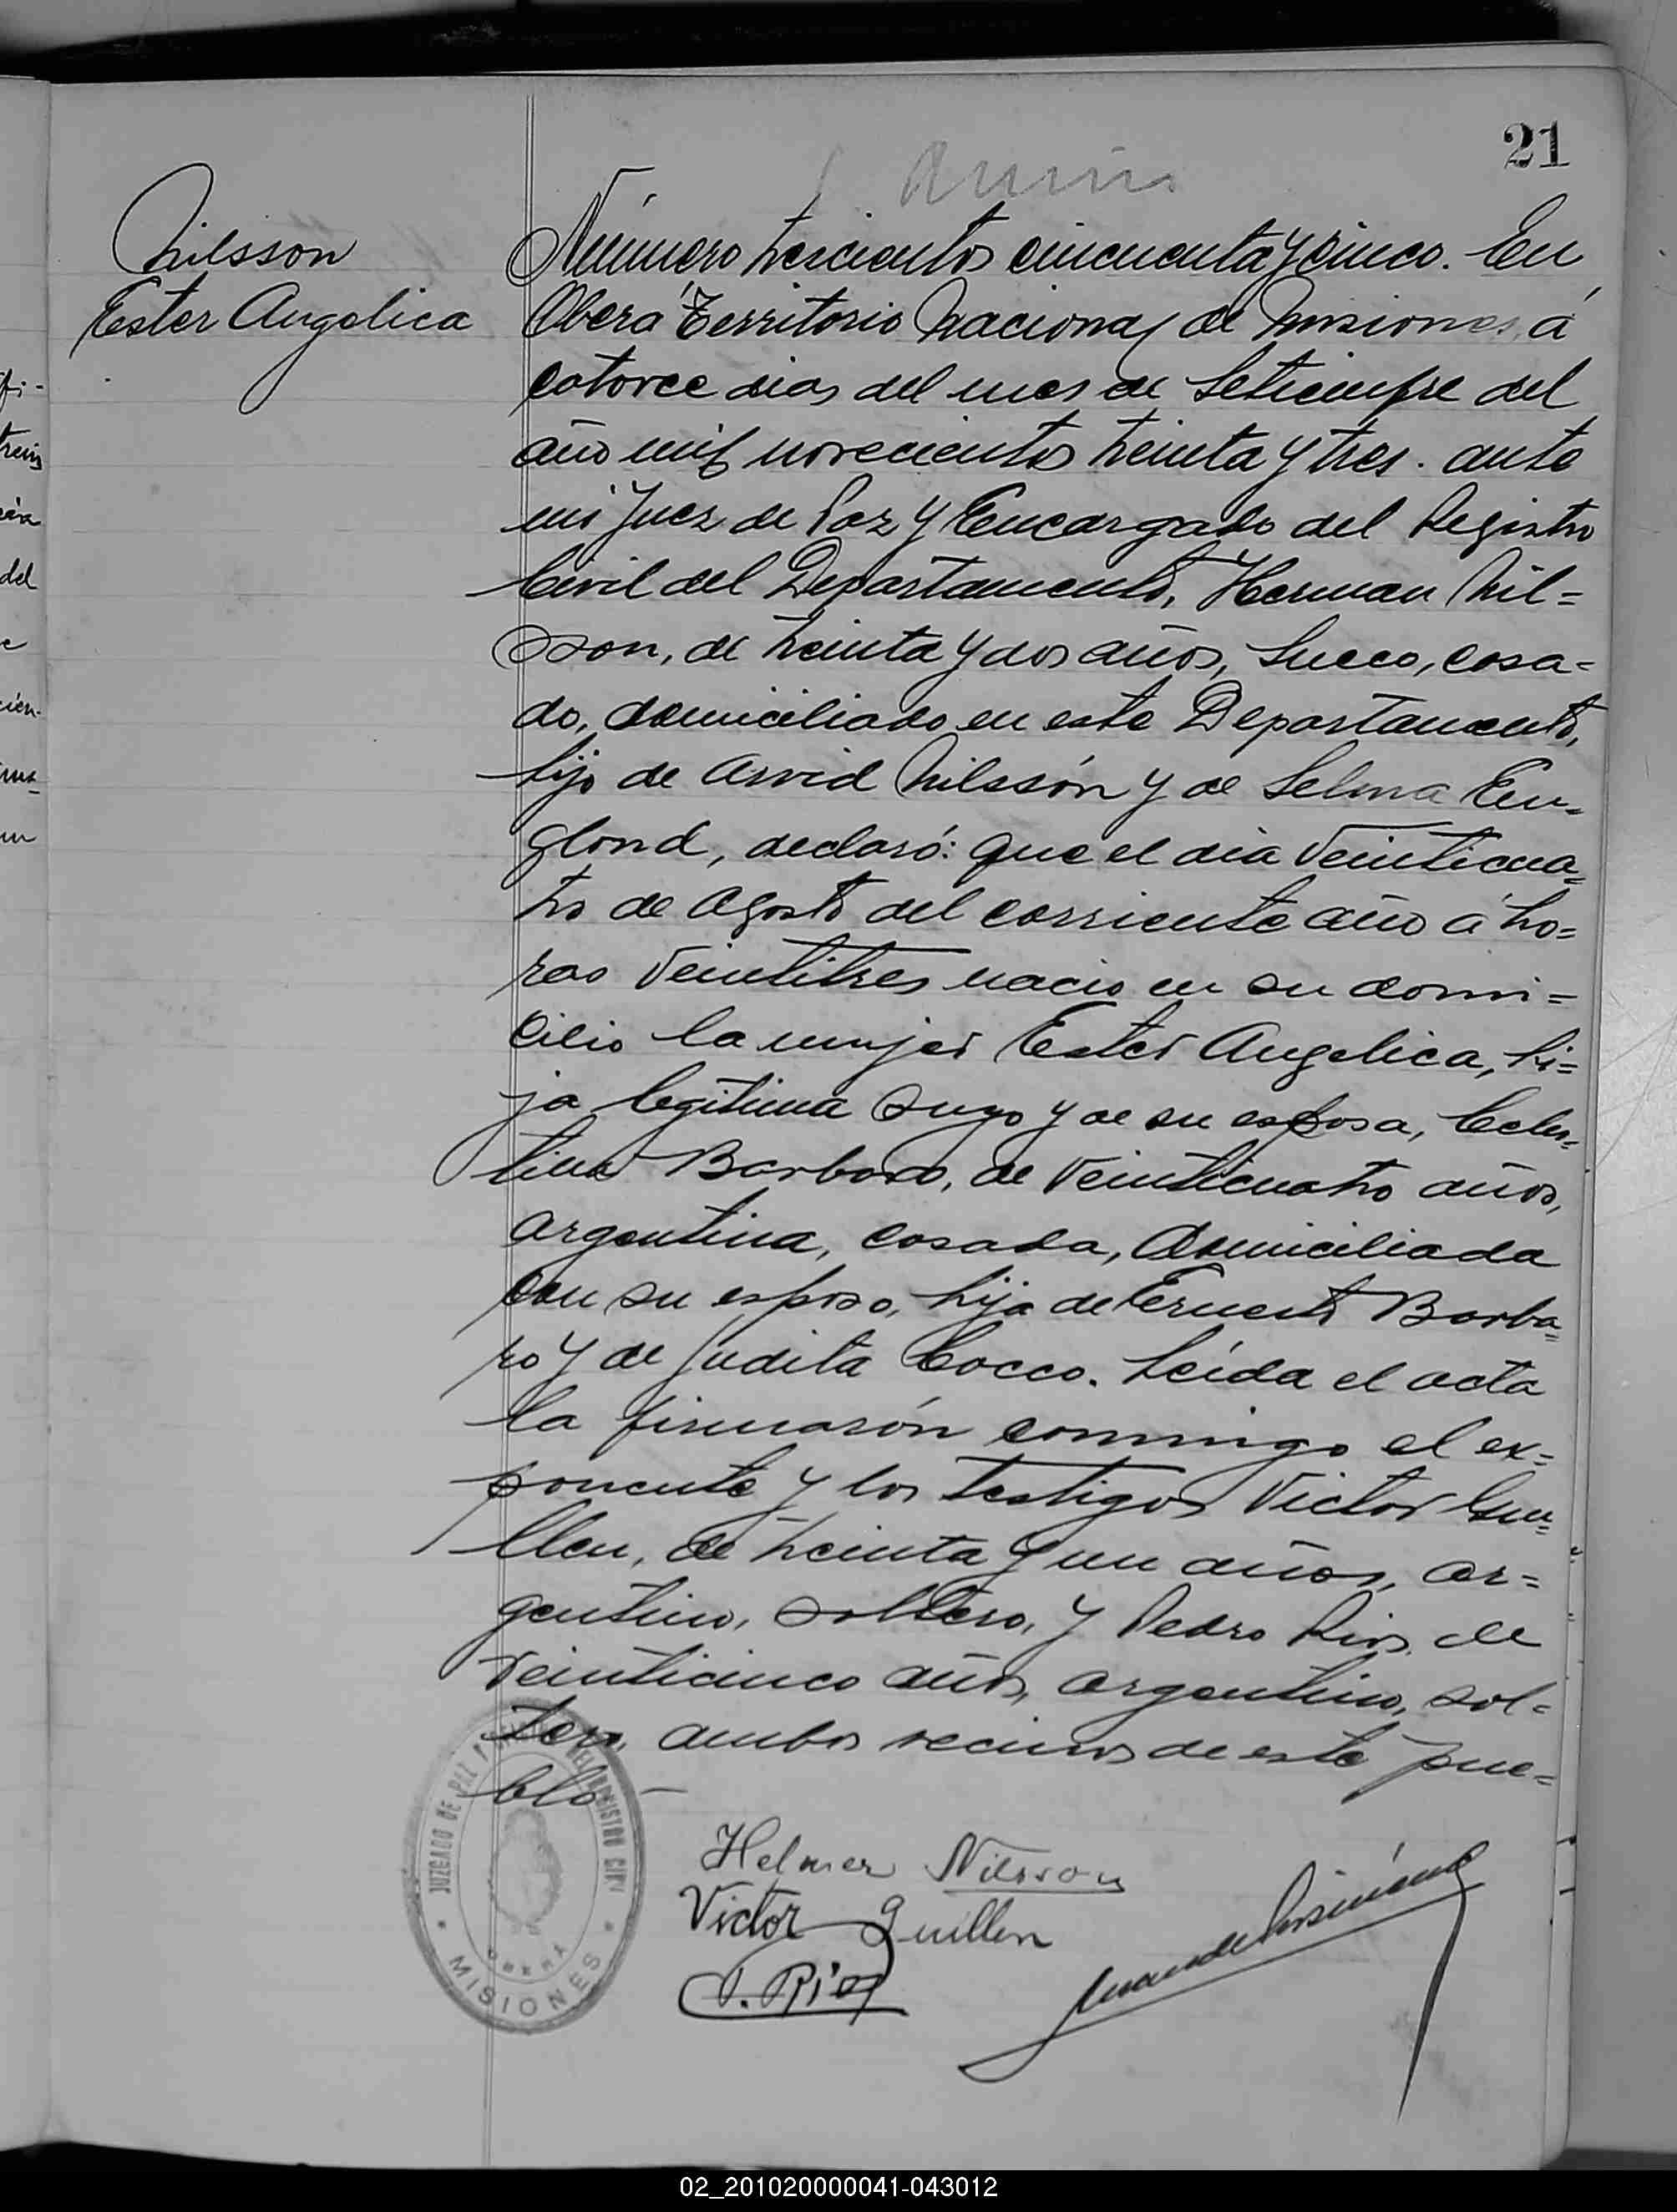 21
Nilsson
Ester Angelica
Número trescientos cincuenta y cinco. En
Oberá Territorio Nacional de Misiones, á
catorce dias del mes de Setiembre del
año mil novecientos treinta y tres. ante
mi Juez de Paz y Encargado del Registro
Civil del Departamento, Herman Nil=
sson, de treinta y dos años, Sueco, casa=
do, domiciliado en este Departamento,
hijo de Arvid Nilssón y de Selma En=
glond, declaró: que el dia veinticua=
tro de Agosto del corriente año á ho=
ras veintitres nacio en su domi=
cilio la mujer Ester Angelica, hi=
ja legitima suya y de su esposa, Celes=
tina Barbaro, de veinticuatro años,
argentina, casada, domiciliada
con su esposo, hija de Ernesto Barba=
ro y de Judita Cocco. Leída el acta
la firmarón conmigo el ex=
ponente y los testigos Victor Gui=
llen, de treinta y un años, ar=
gentino, soltero, y Pedro Rios, de
veinticinco años, argentino, sol=
tero, ambos vecinos de este pue=
blo —
JUZGADO DE PAZ DEL REGISTRO CIVIL
OBERA
MISIONES
Helmer Nilsson
Victor Guillen
P. Rios
02_201020000041-043012